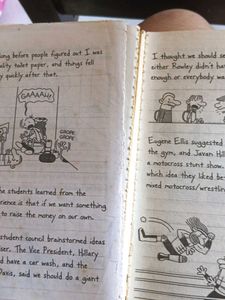 long before people figured out I was
ality toilet paper, and things fell
y quickly after that.
GAAAAH!
GROPE
GROPE
he students learned from the
erience is that if we want something
to raise the money on our own.
student council brainstormed ideas
iser. The Vice President, Hillary
d have a car wash, and the
Davis, said we should do a giant
I thought we should se
either Rowley didn't ha
enough or everybody wa
Eugene Ellis suggested
the gym, and Javan Hil
a motocross stunt show.
which idea they liked be
mixed motocross/wrestlin